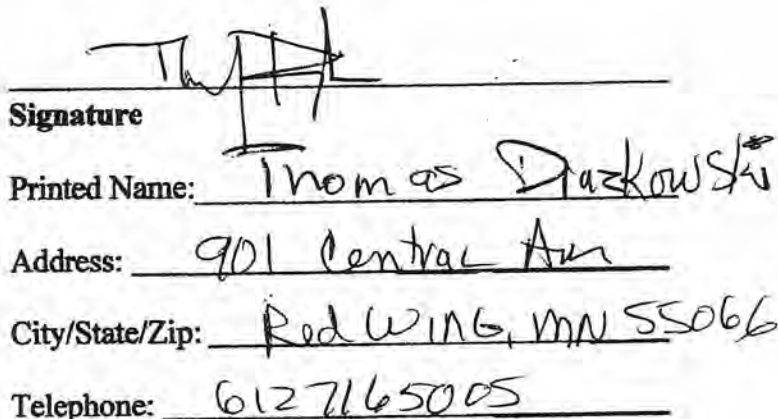 Signature
Printed Name: Thomas Drazkowski
Address: 901 Central Ave
City/State/Zip: Red WING, MN 55066
Telephone: 6127165005